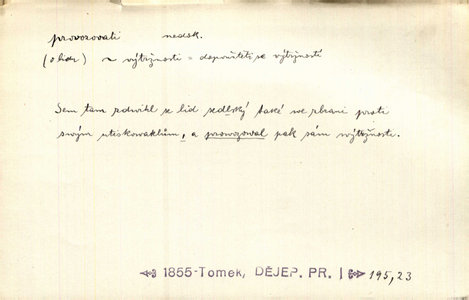 provozovati nedok.
(o lidu) ~ výtržnosti = dopouštěti se výtržností
Sem tam zdwihl se lid sedlský také we zbrani proti
swým utiskowatelům, a prowozowal pak sám wýtržnosti.
1855-Tomek, DĚJEP. PR. I 195,23